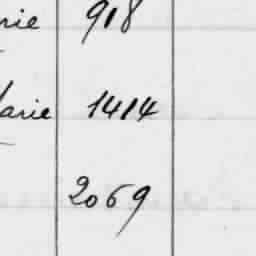 rie 918
arie 1414
2069